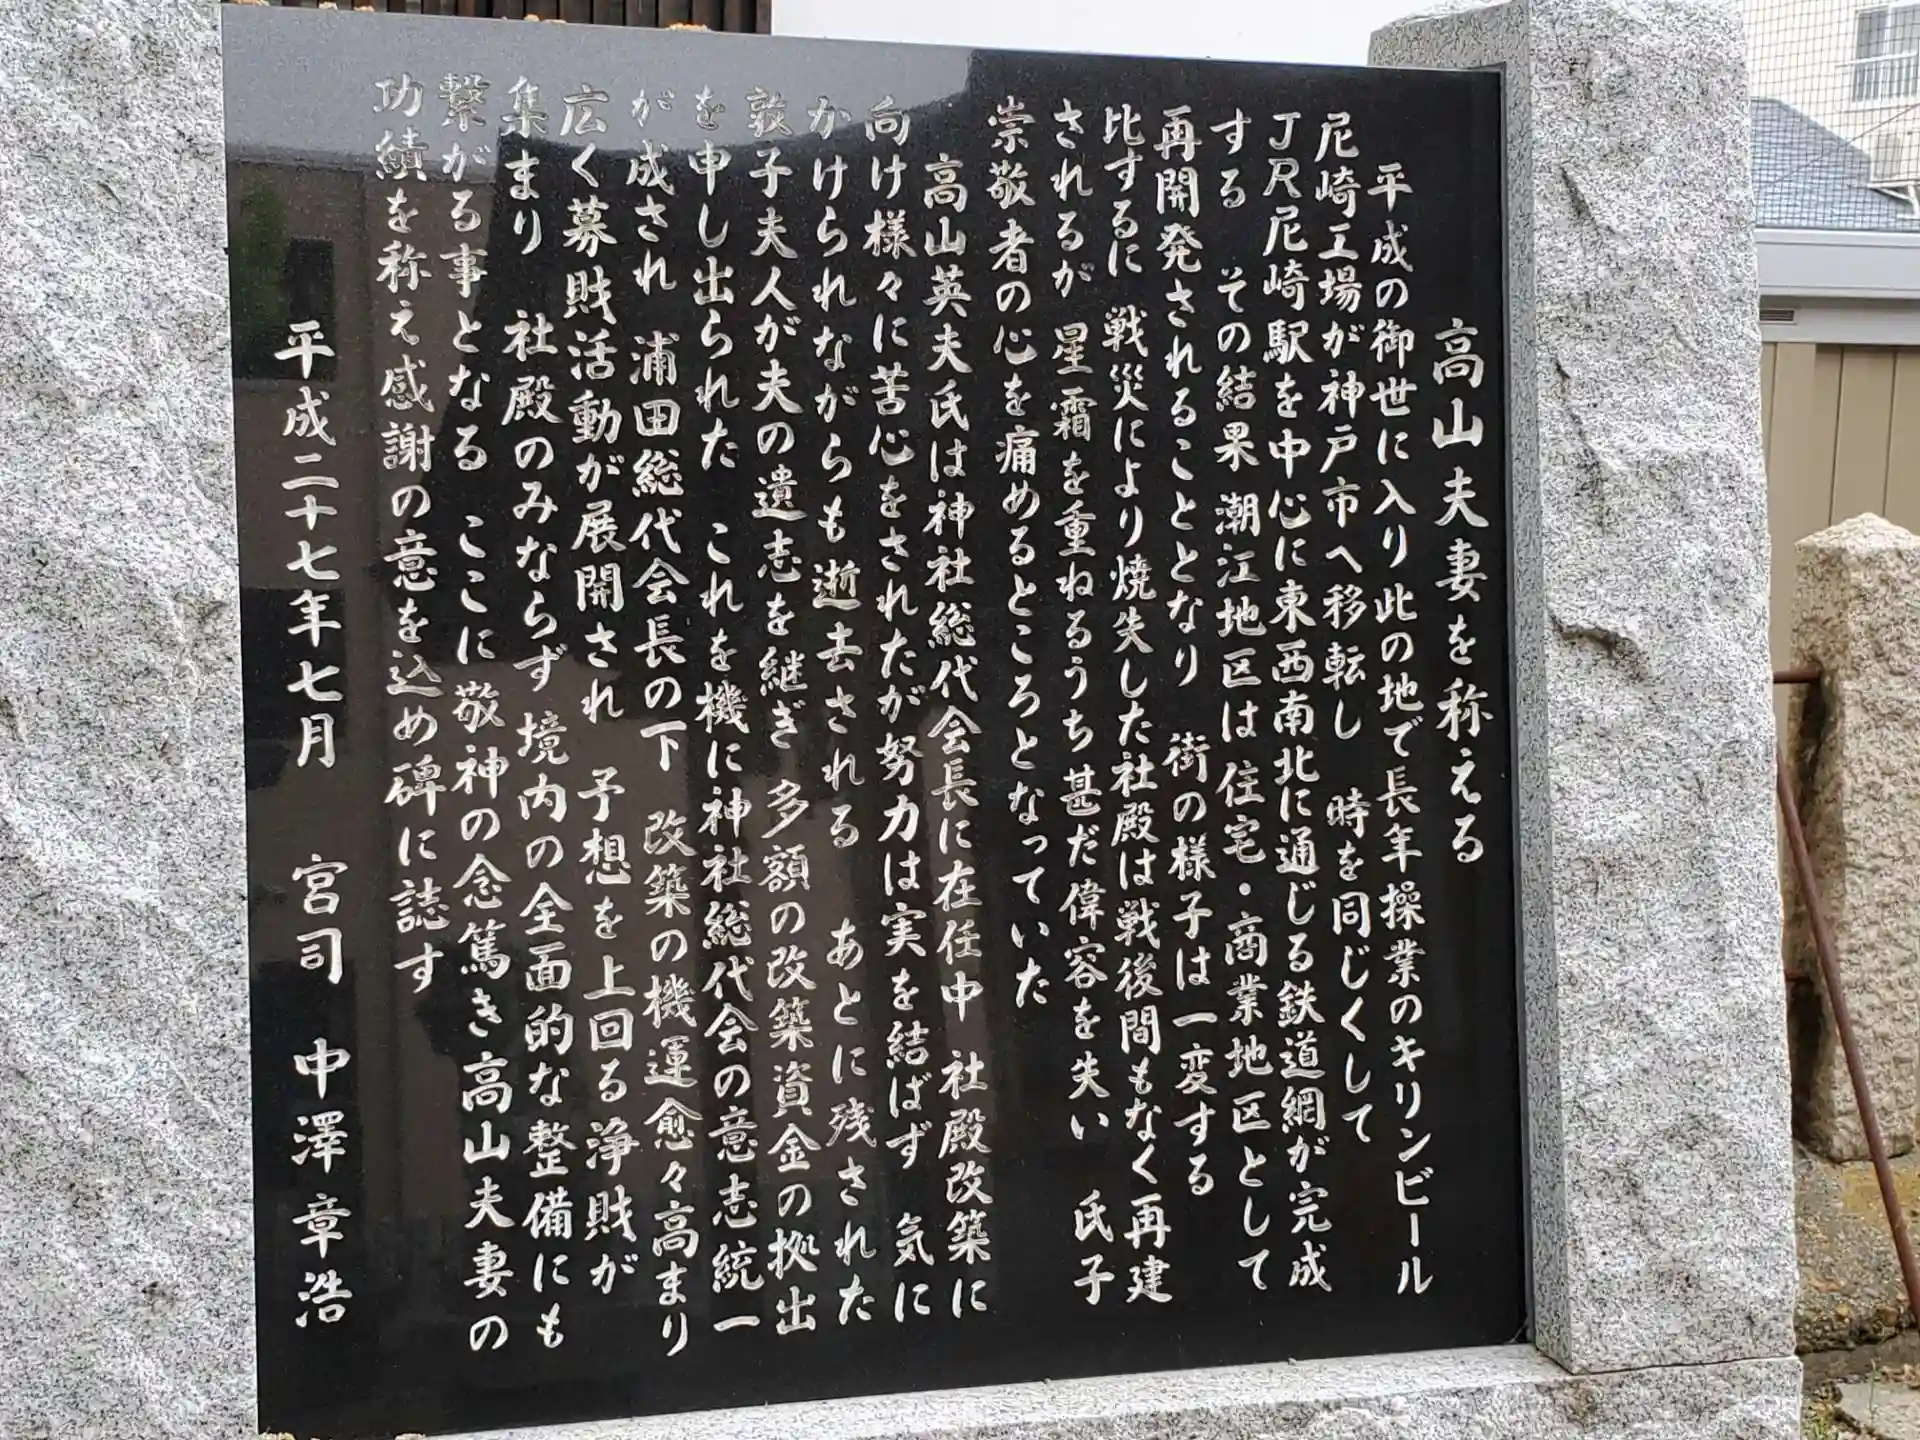 高山夫妻を称える
平成の御世に入り此の地で長年操業のキリンビール
尼崎工場が神戸市へ移転し 時を同じくして
JR尼崎駅を中心に東西南北に通じる鉄道網が完成
する その結果 潮江地区は住宅・商業地区として
再開発されることとなり 街の様子は一変する
比するに 戦災により焼失した社殿は戦後間もなく再建
されるが 星霜を重ねるうち甚だ偉容を失い 氏子
崇敬者の心を痛めるところとなっていた
高山英夫氏は神社総代会長に在任中 社殿改築に
向け様々に苦心をされたが努力は実を結ばず 気に
かけられながらも逝去される あとに残された
敦子夫人が夫の遺志を継ぎ 多額の改築資金の拠出
を申し出られた これを機に神社総代会の意志統一
が成され 浦田総代会長の下 改築の機運愈々高まり
広く募財活動が展開され 予想を上回る浄財が
集まり 社殿のみならず境内の全面的な整備にも
繋がる事となる ここに敬神の念篤き高山夫妻の
功績を称え感謝の意を込め碑に誌す
平成二十七年七月 宮司 中澤章浩